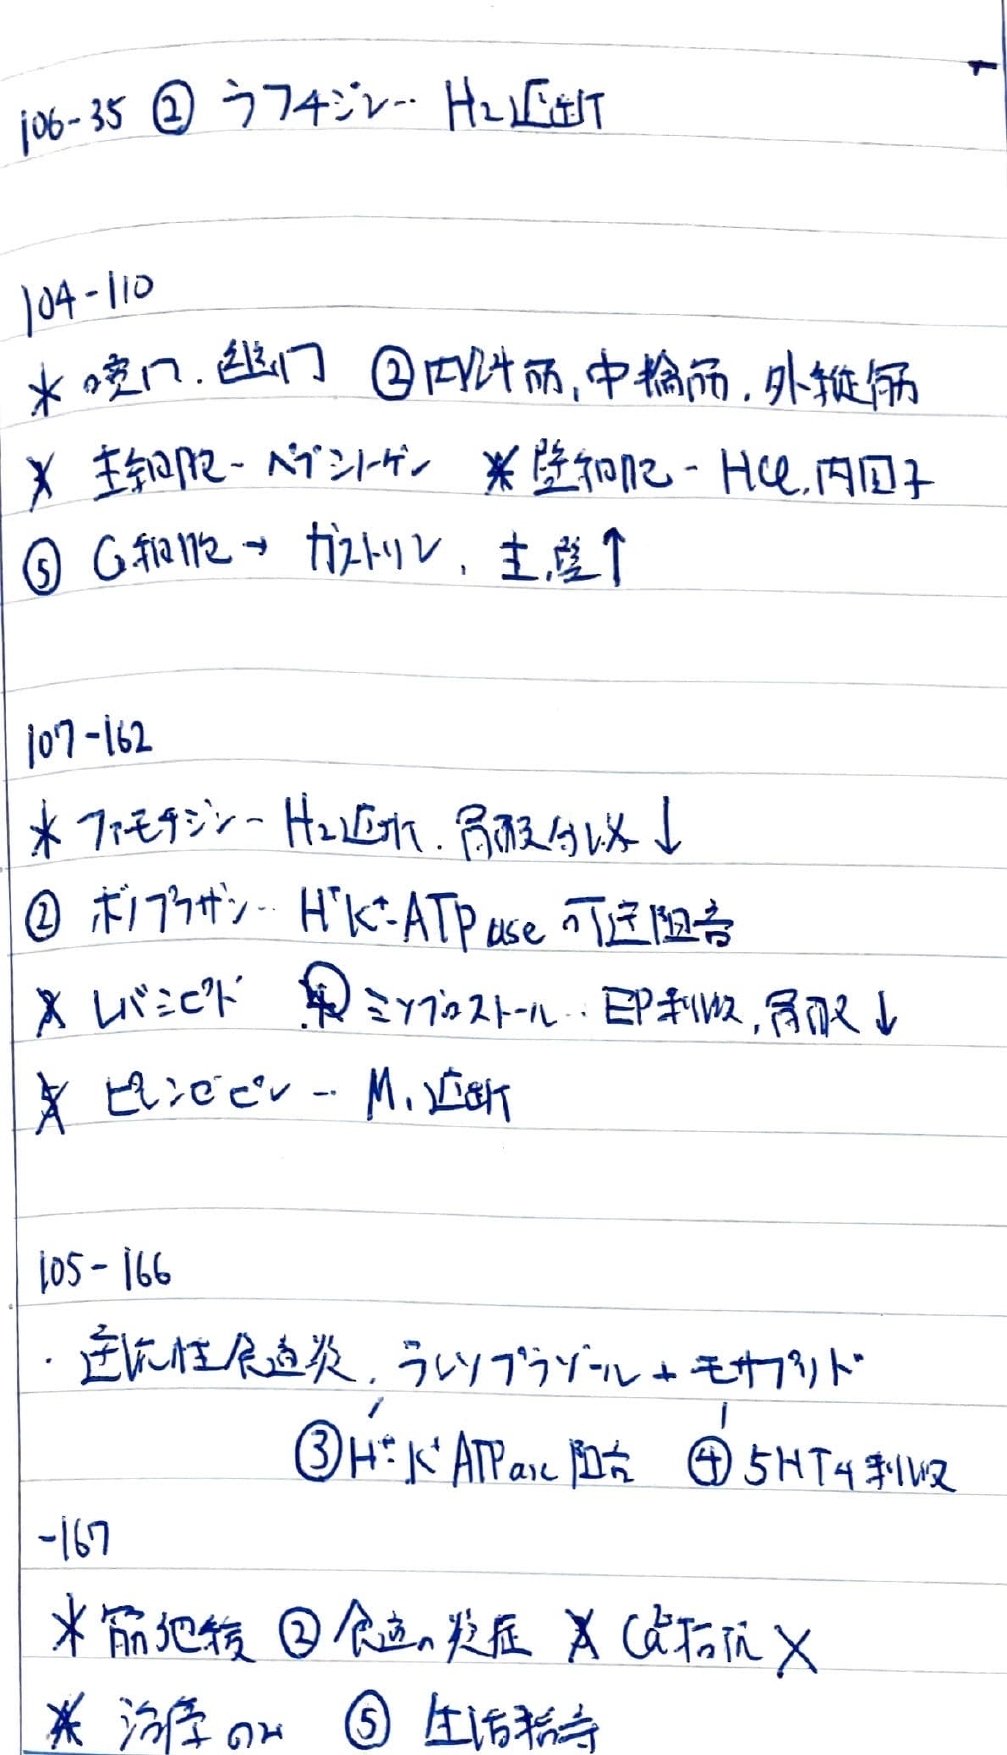 106-35 ② ラフチジン… H₂遮断
104-110
* 噴門. 幽門 ② 内斜筋, 中輪筋, 外縦筋
* 主細胞- ペプシノーゲン * 壁細胞 - HCl, 内因子
⑤ G細胞 → ガストリン, 主,壁↑
107-162
* ファモチジン- H₂遮断. 胃酸分泌↓
② ボノプラザン… H⁺K⁺-ATPase 可逆阻害
* レバミピド ④ ミソプロストール… EP刺激, 胃酸↓
* ピレンゼピン … M₁遮断
105-166
・逆流性食道炎, ランソプラゾール + モサプリド
③ H⁺-K⁺ATPase阻害 ④ 5HT₄刺激
-167
* 筋弛緩 ② 食道の炎症 * Ca拮抗 ×
* 治療のみ ⑤ 生活指導